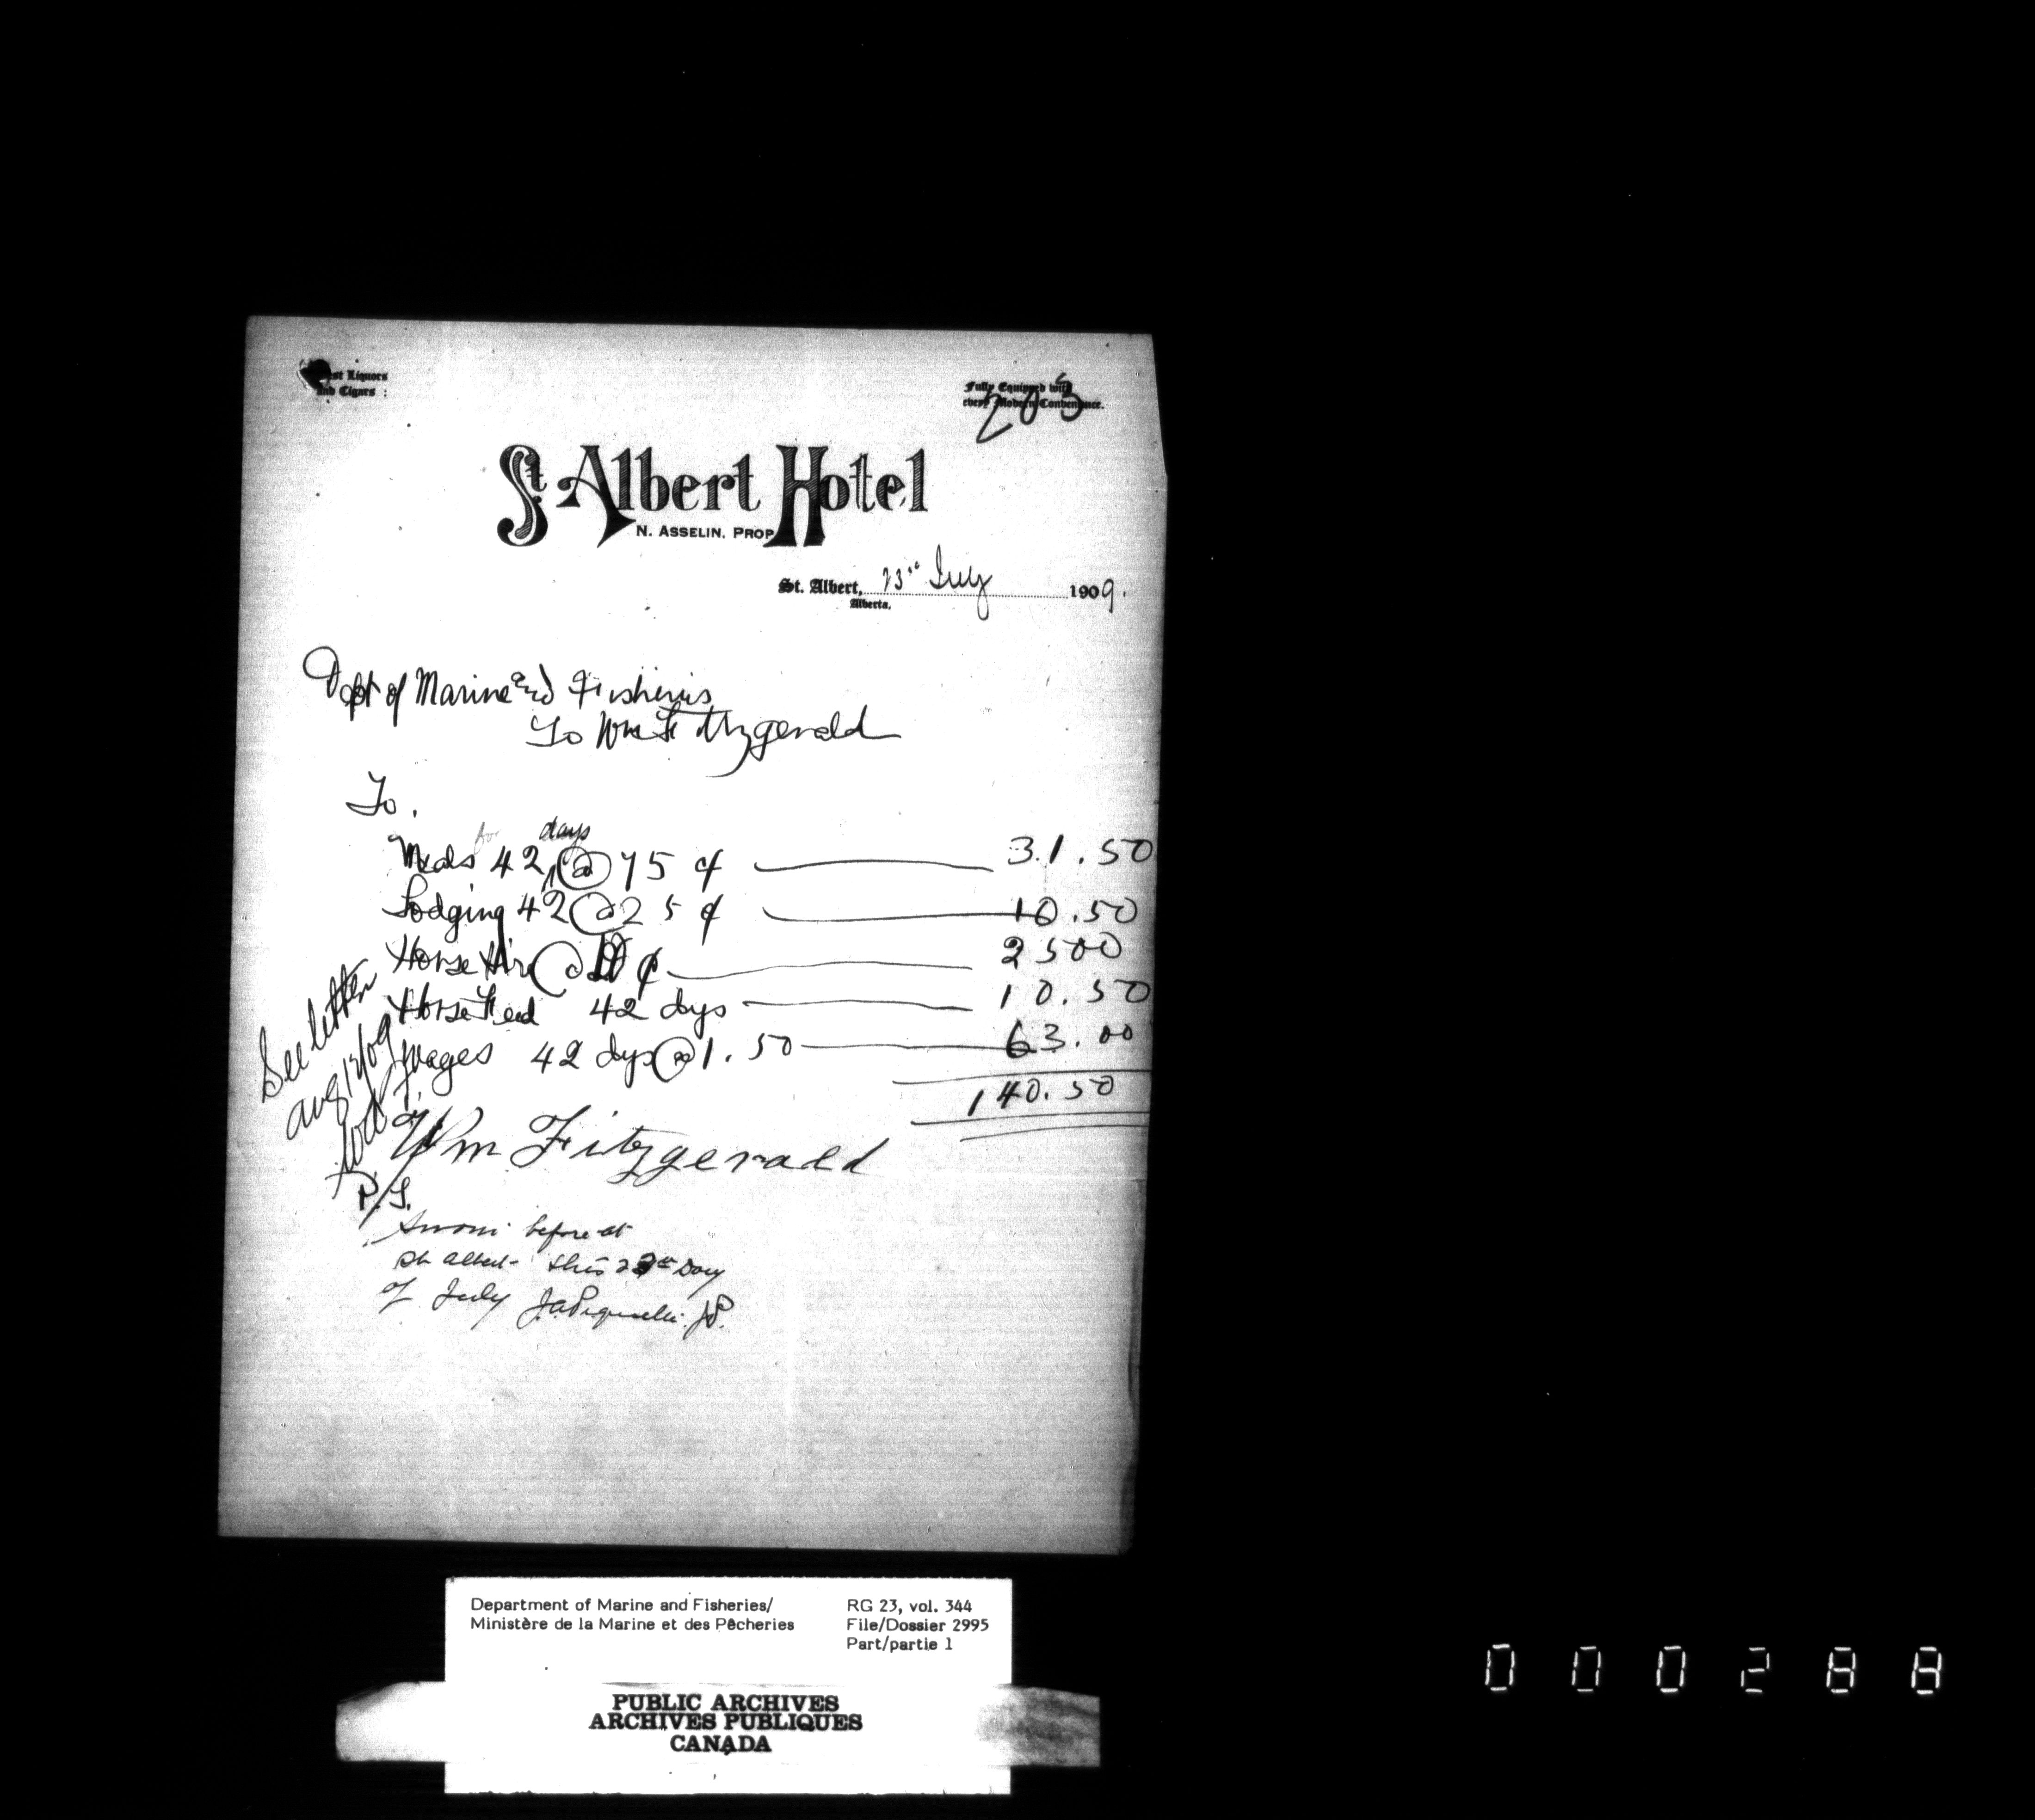 est Liquors
and Cigars :
Fully Equipped with
every Modern Convenience.
203
St Albert Hotel
N. ASSELIN, PROP
St. Albert, 23rd July 1909.
Alberta.
Dept of Marine and Fisheries
To Wm Fitzgerald
To.
Meals for 42 days @ 75 ¢ 31.50
Lodging 42 @ 25 ¢ 10.50
Horse Hire @ ¢ 2500
Horse Feed 42 days 10.50
Wages 42 dys @ 1.50 63.00
140.50
See letter
Aug 12/09
Wm Fitzgerald
P.S.
Sworn before at
St Albert this 23rd Day
of July J.P.
Department of Marine and Fisheries/
Ministère de la Marine et des Pêcheries
RG 23, vol. 344
File/Dossier 2995
Part/partie 1
PUBLIC ARCHIVES
ARCHIVES PUBLIQUES
CANADA
000288